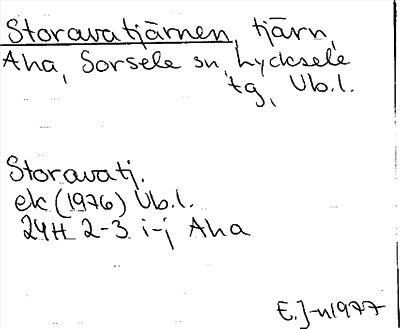 Storavatjärnen, tjärn,
Aha, Sorsele sn, Lycksele
tg, Vb.l.
Storavatj.
ek (1976) Vb.l.
24H 2-3 i-j Aha
E.J-n 1977